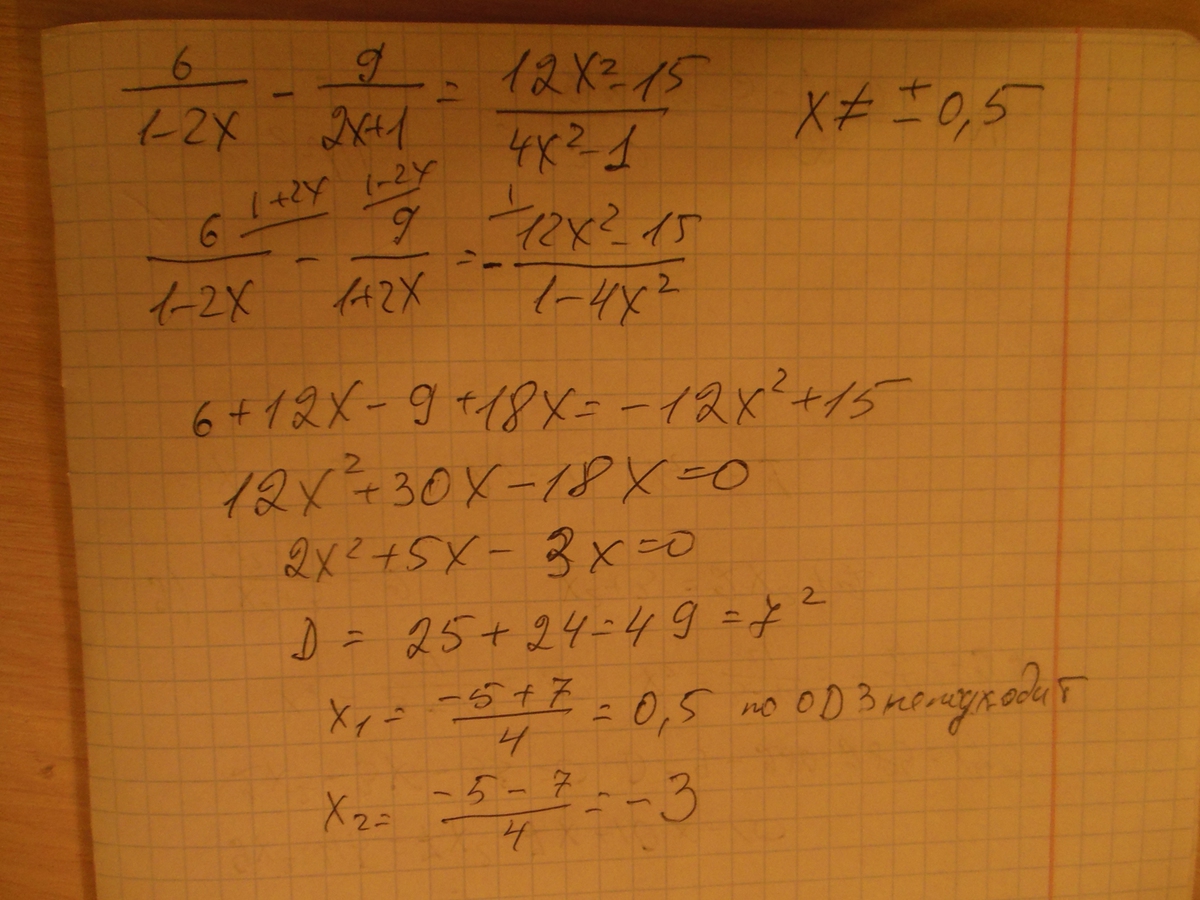 6/(1-2x) - 9/(2x+1) = (12x²-15)/(4x²-1) x ≠ ±0,5
1+2x 1-2x 1
6/(1-2x) - 9/(1+2x) = - (12x²-15)/(1-4x²)
6+12x-9+18x=-12x²+15
12x²+30x-18x=0
2x²+5x-3x=0
D = 25+24=49=7²
x₁ = (-5+7)/4 = 0,5 по ОДЗ не
x₂= (-5-7)/4 = -3